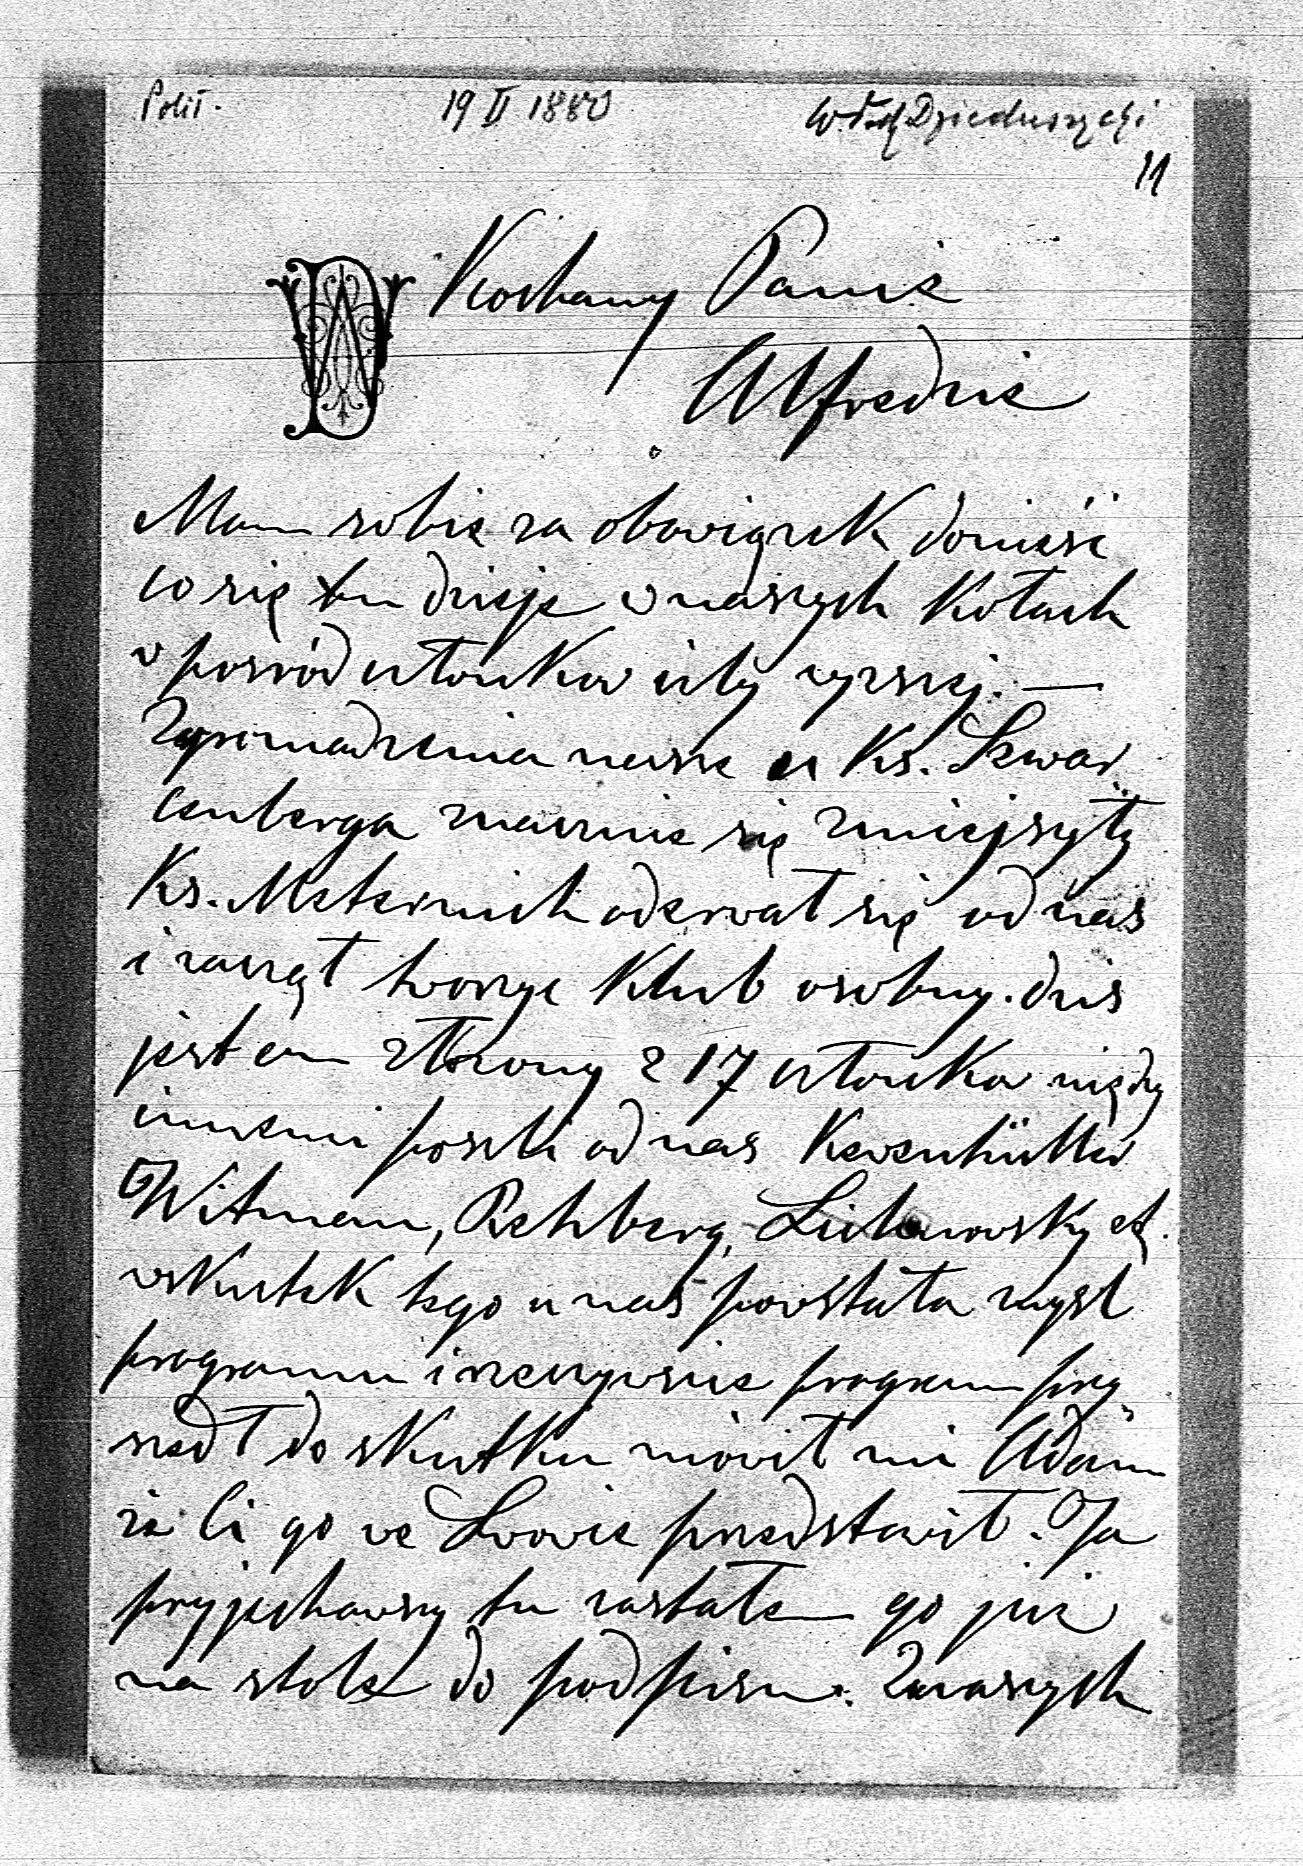 Polit. 19 II 1880 Włodz Dzieduszycki
11
Kochany Panie
Alfredzie
Mam sobie za obowiązek donieść
co się tu dzieje w naszych Kołach
w pośród członków izby wyższej. —
Zgromadzenia nasze u Ks. Szwar
cenberga znacznie się zmiejszyły
Ks. Meternich oderwał się od nas
i zaczął tworzyć Klub osobny. dziś
jest on złożony z 17 członków między
innemi poszli od nas Kevenhüller
Witman, Rehberg, Lichnowsky et.
wskutek tego u nas powstała myśl
programu i rzeczywiście program przy
szedł do skutku mówił mi Adam
że Ci go we Lwowie przedstawił. Ja
przyjechawszy tu zastałem go już
na stole do podpisu. Z naszych